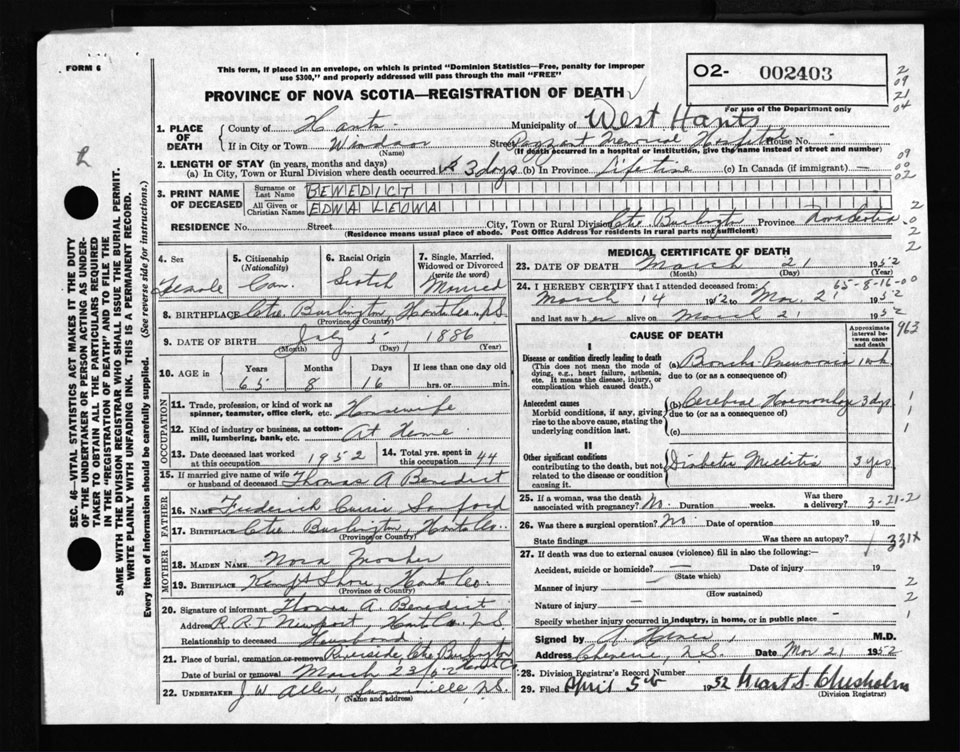 FORM 6
This form, if placed in an envelope, on which is printed "Dominion Statistics—Free, penalty for improper
use $300," and properly addressed will pass through the mail "FREE"
PROVINCE OF NOVA SCOTIA—REGISTRATION OF DEATH
02- 002403
For use of the Department only
2
09
21
04
1. PLACE OF DEATH
County of Hants
Municipality of West Hants
If in City or Town Windsor
(Name)
Street Payzant Memorial Hospital House No.
(If death occurred in a hospital or institution, give the name instead of street and number)
2. LENGTH OF STAY (in years, months and days)
(a) In City, Town or Rural Division where death occurred 3 days (b) In Province Lifetime (c) In Canada (if immigrant) —
09
00
02
3. PRINT NAME OF DECEASED
Surname or Last Name BENEDICT
All Given or Christian Names EDNA LEONA
RESIDENCE No. Street City, Town or Rural Division Ctre. Burlington Province Nova Scotia
(Residence means usual place of abode. Post Office Address for residents in rural parts not sufficient)
2
0
2
2
SEC. 46—VITAL STATISTICS ACT MAKES IT THE DUTY
OF THE UNDERTAKER OR PERSON ACTING AS UNDER-
TAKER TO OBTAIN ALL THE PARTICULARS REQUIRED
IN THE "REGISTRATION OF DEATH" AND TO FILE THE
SAME WITH THE DIVISION REGISTRAR WHO SHALL ISSUE THE BURIAL PERMIT.
WRITE PLAINLY WITH UNFADING INK. THIS IS A PERMANENT RECORD.
Every item of information should be carefully supplied. (See reverse side for instructions.)
4. Sex
Female
5. Citizenship
(Nationality)
Can.
6. Racial Origin
Scotch
7. Single, Married,
Widowed or Divorced
(write the word)
Married
8. BIRTHPLACE Ctre. Burlington, Hants Co. N.S.
(Province or Country)
9. DATE OF BIRTH July 5 1886
(Month) (Day) (Year)
10. AGE in
Years Months Days If less than one day old
65 8 16 hrs. or min.
OCCUPATION
11. Trade, profession, or kind of work as
spinner, teamster, office clerk, etc. Housewife
12. Kind of industry or business, as cotton-
mill, lumbering, bank, etc. At Home
13. Date deceased last worked
at this occupation 1952
14. Total yrs. spent in
this occupation 44
15. If married give name of wife
or husband of deceased Thomas A Benedict
FATHER
16. Name Frederick Sanford
17. Birthplace Ctre Burlington, Hants Co.
(Province or Country)
MOTHER
18. MAIDEN NAME Nora Mosher
19. BIRTHPLACE Kempt Shore, Hants Co.
(Province or Country)
20. Signature of informant Thomas A. Benedict
Address R.R.1 Newport, Hants Co. N.S.
Relationship to deceased Husband
21. Place of burial, cremation or removal Riverside, Ctre Burlington
Hants Co
Date of burial or removal March 23/52
22. UNDERTAKER J W Allen, Summerville N.S.
(Name and address)
MEDICAL CERTIFICATE OF DEATH
23. DATE OF DEATH March 21 1952
(Month) (Day) (Year)
65-8-16-00
24. I HEREBY CERTIFY that I attended deceased from
March 14 1952 to Mar. 21 1952
and last saw her alive on March 21 1952
CAUSE OF DEATH
Approximate interval between onset and death
963
I
Disease or condition directly leading to death
(This does not mean the mode of
dying, e.g., heart failure, asthenia,
etc. It means the disease, injury, or
complication which caused death.)
(a) Broncho Pneumonia 1 wk
due to (or as a consequence of)
Antecedent causes
Morbid conditions, if any, giving
rise to the above cause, stating the
underlying condition last.
(b) Cerebral Haemorrhage 3 dys
due to (or as a consequence of)
(c)
1
1
II
Other significant conditions
contributing to the death, but not
related to the disease or condition
causing it.
Diabetes Mellitis 3 yrs
25. If a woman, was the death
associated with pregnancy? No. Duration weeks.
Was there
a delivery?
3-21-2
26. Was there a surgical operation? No. Date of operation 19
State findings Was there an autopsy?
331X
27. If death was due to external causes (violence) fill in also the following:—
Accident, suicide or homicide? — Date of injury 19
(State which)
Manner of injury —
(How sustained)
Nature of injury —
Specify whether injury occurred in industry, in home, or in public place —
2
2
1
Signed by M.D.
Address Cheverie, N.S. Date Mar 21 1952
28. Division Registrar's Record Number
29. Filed April 5th 1952 Chisholm
(Division Registrar)